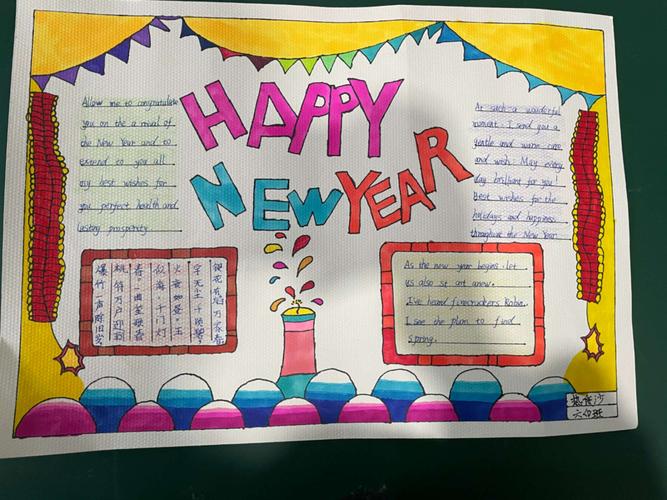 HAPPY
NEW YEAR
Allow me to congratulate
you on the a rival of
the New Year and to
extend to you all
my best wishes for
you perfect health and
lasting prosperity
At such a wonderful
moment, I send you a
gentle and warm care
and wish. May every
day brilliant for you!
Best wishes for the
holidays and happiness
throughout the New Year
爆竹一声除旧岁
桃符万户迎
春一曲
似海千门灯
火
宇无尘千
银花万家春
As the new year begins, let
us also st art anew.
I've heard firecruckers Robin.
I see the plum to find
spring.
六